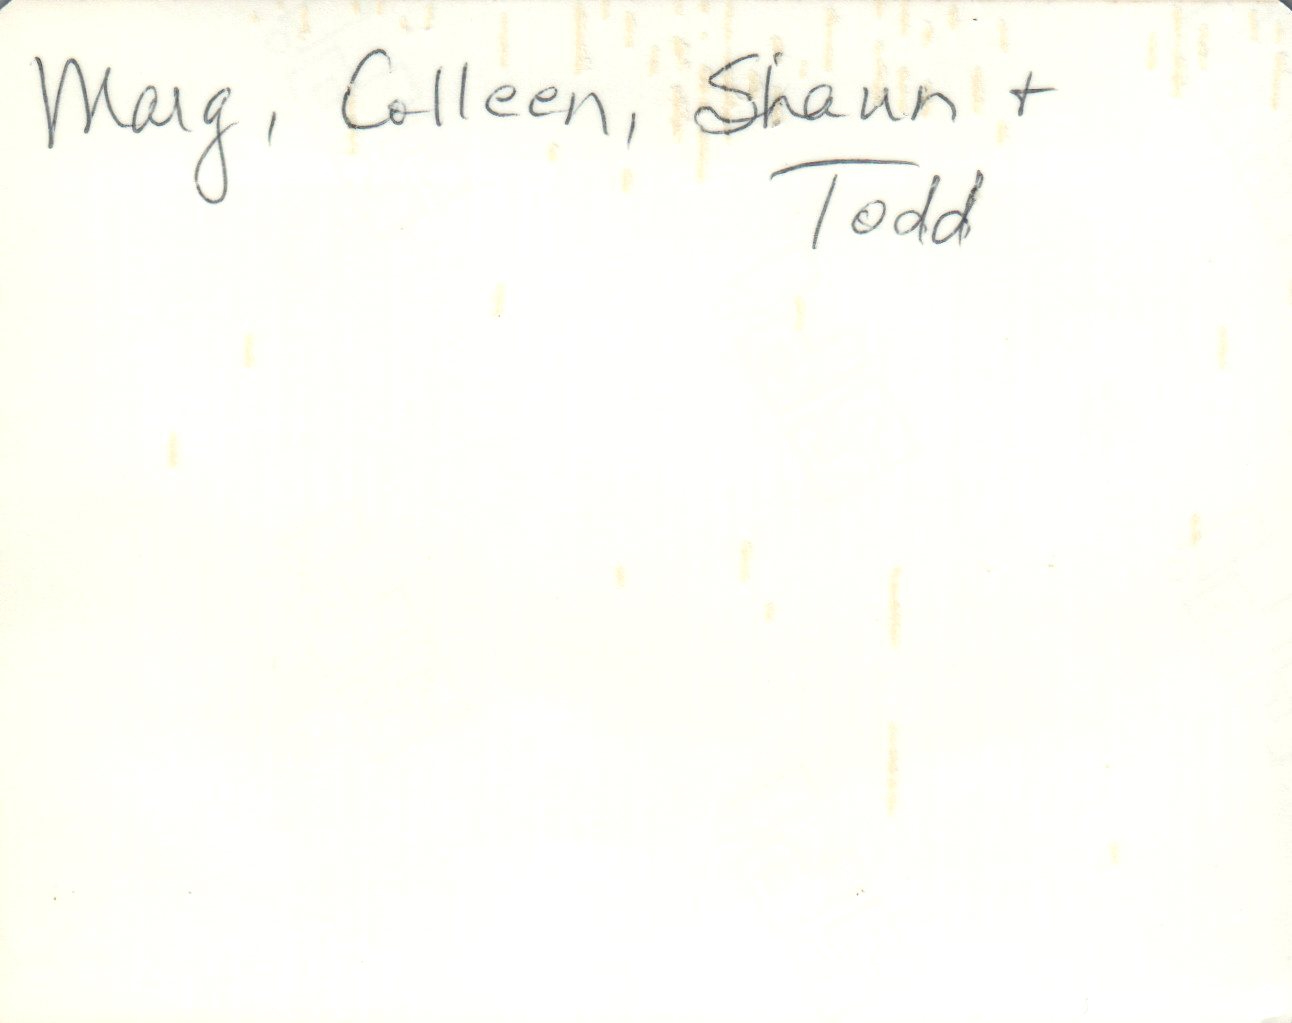 Marg, Colleen, Shaun +
Todd